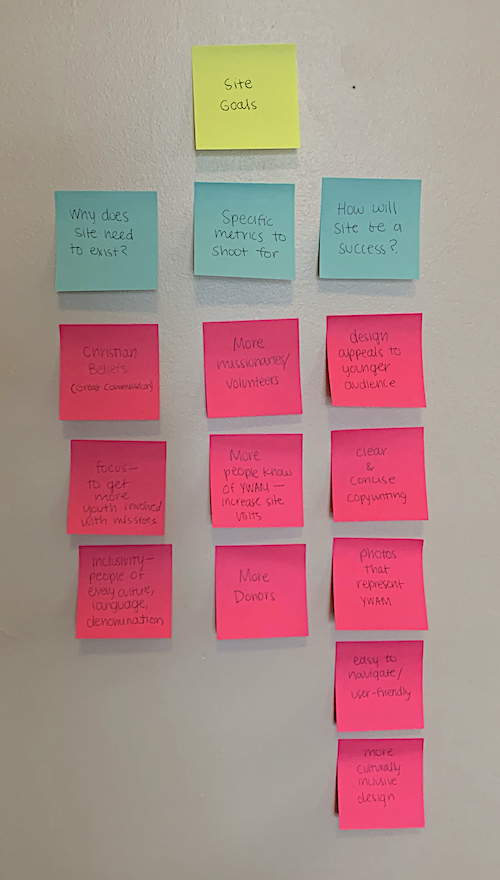 Site
Goals
Why does
site need
to exist?
Christian
Beliefs
(Great Commission)
focus—
to get
more
youth involved
with missions
inclusivity—
people of
every culture,
language,
denomination
Specific
metrics to
shoot for
More
missionaries/
volunteers
More
people know
of YWAM—
increase site
visits
More
Donors
How will
site be a
success?
design
appeals to
younger
audience
clear
&
concise
copywriting
photos
that
represent
YWAM
easy to
navigate/
user-friendly
more
culturally
inclusive
design